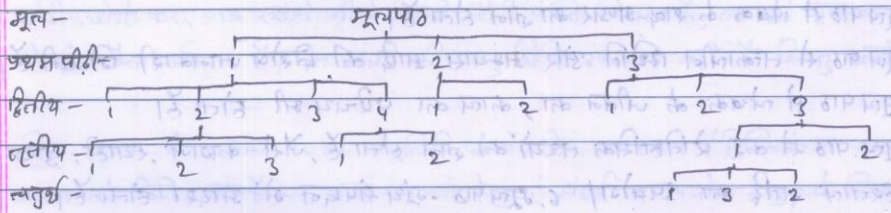 मूल - मूलपाठ
प्रथम पीढ़ी - 1 2 3
द्वितीय - 1 2 3 4 1 2 1 2 3
तृतीय - 1 2 3 1 2 1 2
चतुर्थ - 1 3 2